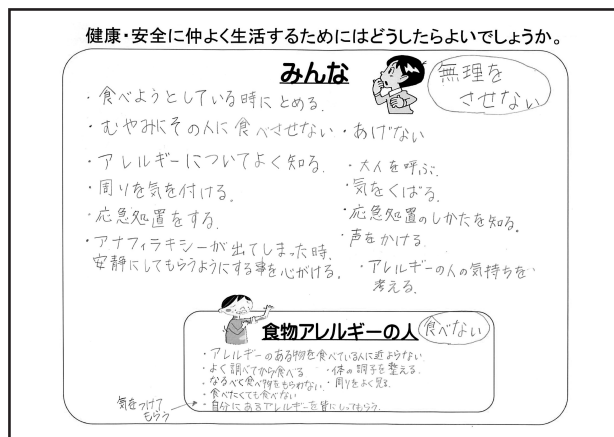 健康・安全に仲よく生活するためにはどうしたらよいでしょうか。
みんな
無理を
させない
・食べようとしている時にとめる。
・むやみにその人に食べさせない・あげない
・アレルギーについてよく知る。
・周りを気を付ける。
・応急処置をする。
・アナフィラキシーが出てしまった時、
安静にしてもらうようにする事を心がける。
・大人を呼ぶ。
・気をくばる。
・応急処置のしかたを知る。
・声をかける。
・アレルギーの人の気持ちを
考える。
食物アレルギーの人
食べない
・アレルギーのある物を食べている人に近よらない。
・よく調べてから食べる ・体の調子を整える。
・なるべく食べ物をもらわない。・周りをよく見る。
・食べたくても食べない
・自分にあるアレルギーを皆にしってもらう。
気をつけて
もらう